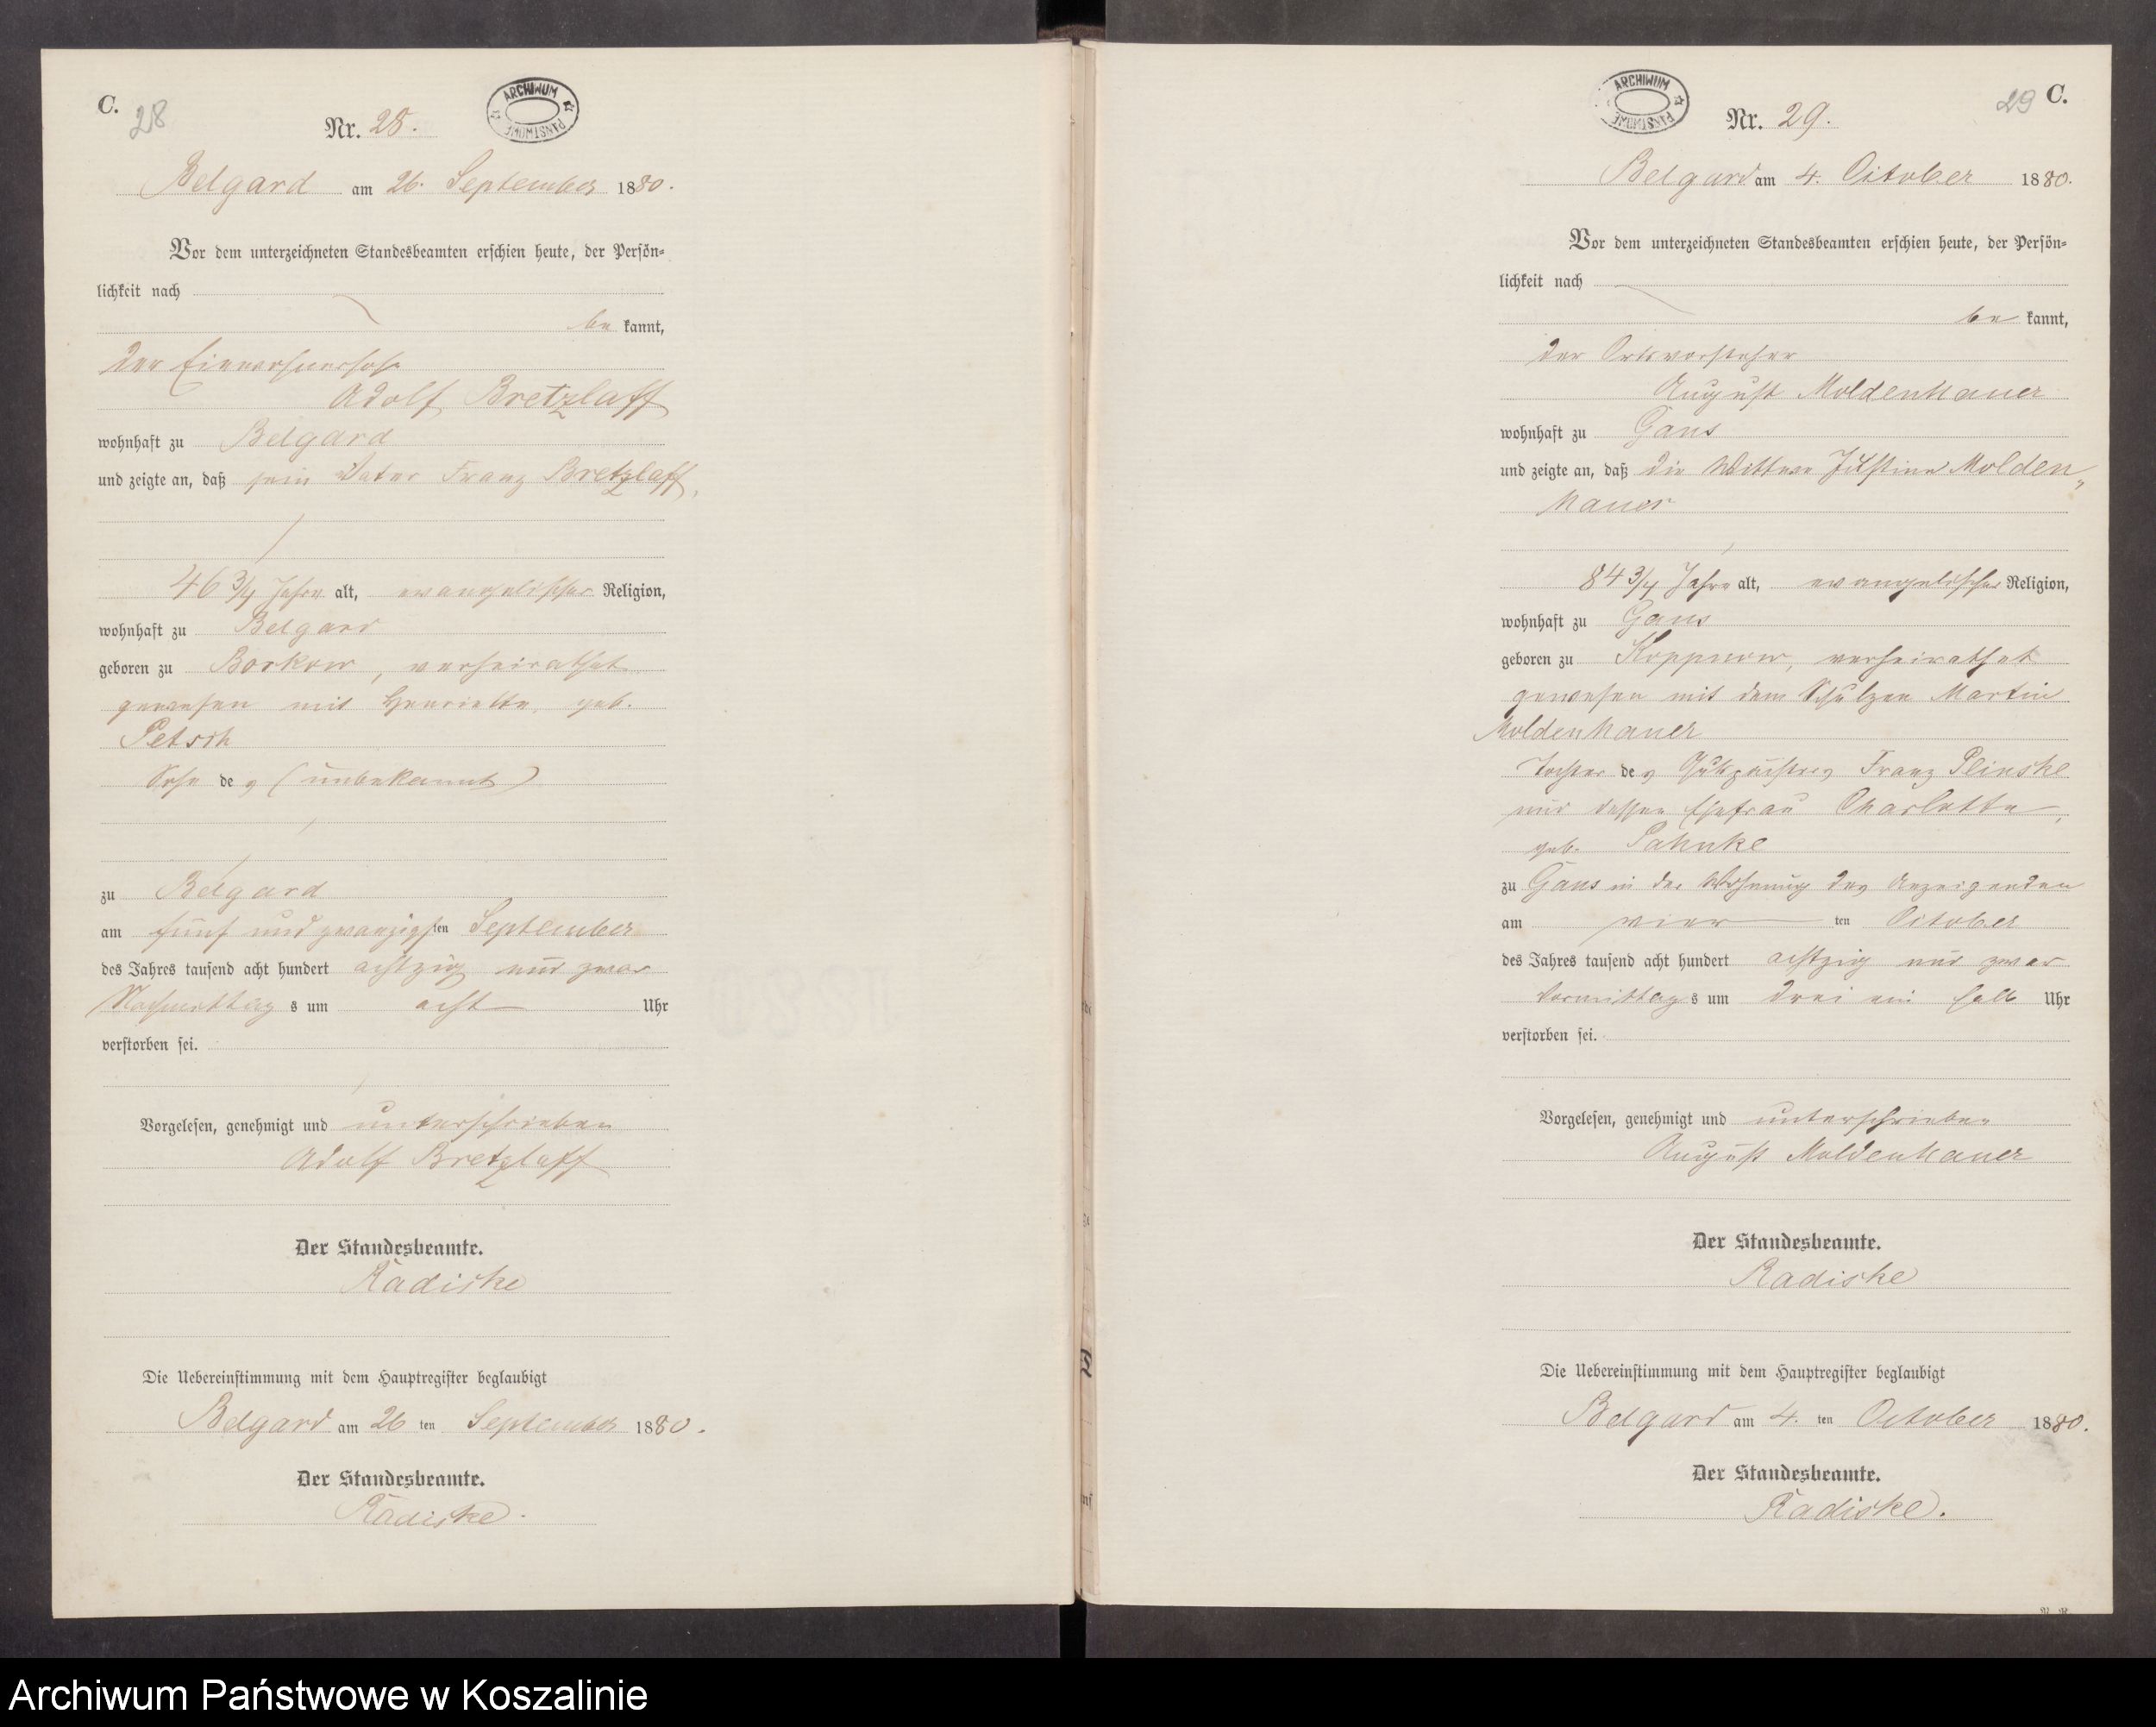 C.
28
Nr. 28.
ARCHIWUM
PAŃSTWOWE
Belgard am 26. September 1880.
Vor dem unterzeichneten Standesbeamten erschien heute, der Persön-
lichkeit nach
be kannt,
der Einwohnersohn
Adolf Bretzlaff
wohnhaft zu Belgard
und zeigte an, daß sein Vater Franz Bretzlaff,
46 3/4 Jahre alt, evangelischer Religion,
wohnhaft zu Belgard
geboren zu Borkow, verheirathet
gewesen mit Henriette, geb.
Petsch
Sohn des (unbekannt)
zu Belgard
am fünf und zwanzigsten September
des Jahres tausend acht hundert achtzig und zwar
Nachmittag s um acht Uhr
verstorben sei.
Vorgelesen, genehmigt und unterschrieben
Adolf Bretzlaff
Der Standesbeamte.
Radiske
Die Uebereinstimmung mit dem Hauptregister beglaubigt
Belgard am 26 ten September 1880.
Der Standesbeamte.
Radiske.
29 C.
ARCHIWUM
PAŃSTWOWE
Nr. 29.
Belgard am 4. October 1880.
Vor dem unterzeichneten Standesbeamten erschien heute, der Persön-
lichkeit nach
be kannt,
der Ortsvorsteher
August Moldenhauer
wohnhaft zu Gans
und zeigte an, daß die Wittwe Justine Molden„
hauer
84 3/4 Jahre alt, evangelischer Religion,
wohnhaft zu Gans
geboren zu Koppnow, verheirathet
gewesen mit dem Schulzen Martin
Moldenhauer
Tochter des Gutspächters Franz Plinske
und dessen Ehefrau Charlotte,
geb. Pahnke
zu Gans in der Wohnung des Anzeigenden
am vier ten October
des Jahres tausend acht hundert achtzig und zwar
Vormittag s um drei ein halb Uhr
verstorben sei.
Vorgelesen, genehmigt und unterschrieben
August Moldenhauer
Der Standesbeamte.
Radiske
Die Uebereinstimmung mit dem Hauptregister beglaubigt
Belgard am 4. ten October 1880.
Der Standesbeamte.
Radiske.
Archiwum Państwowe w Koszalinie